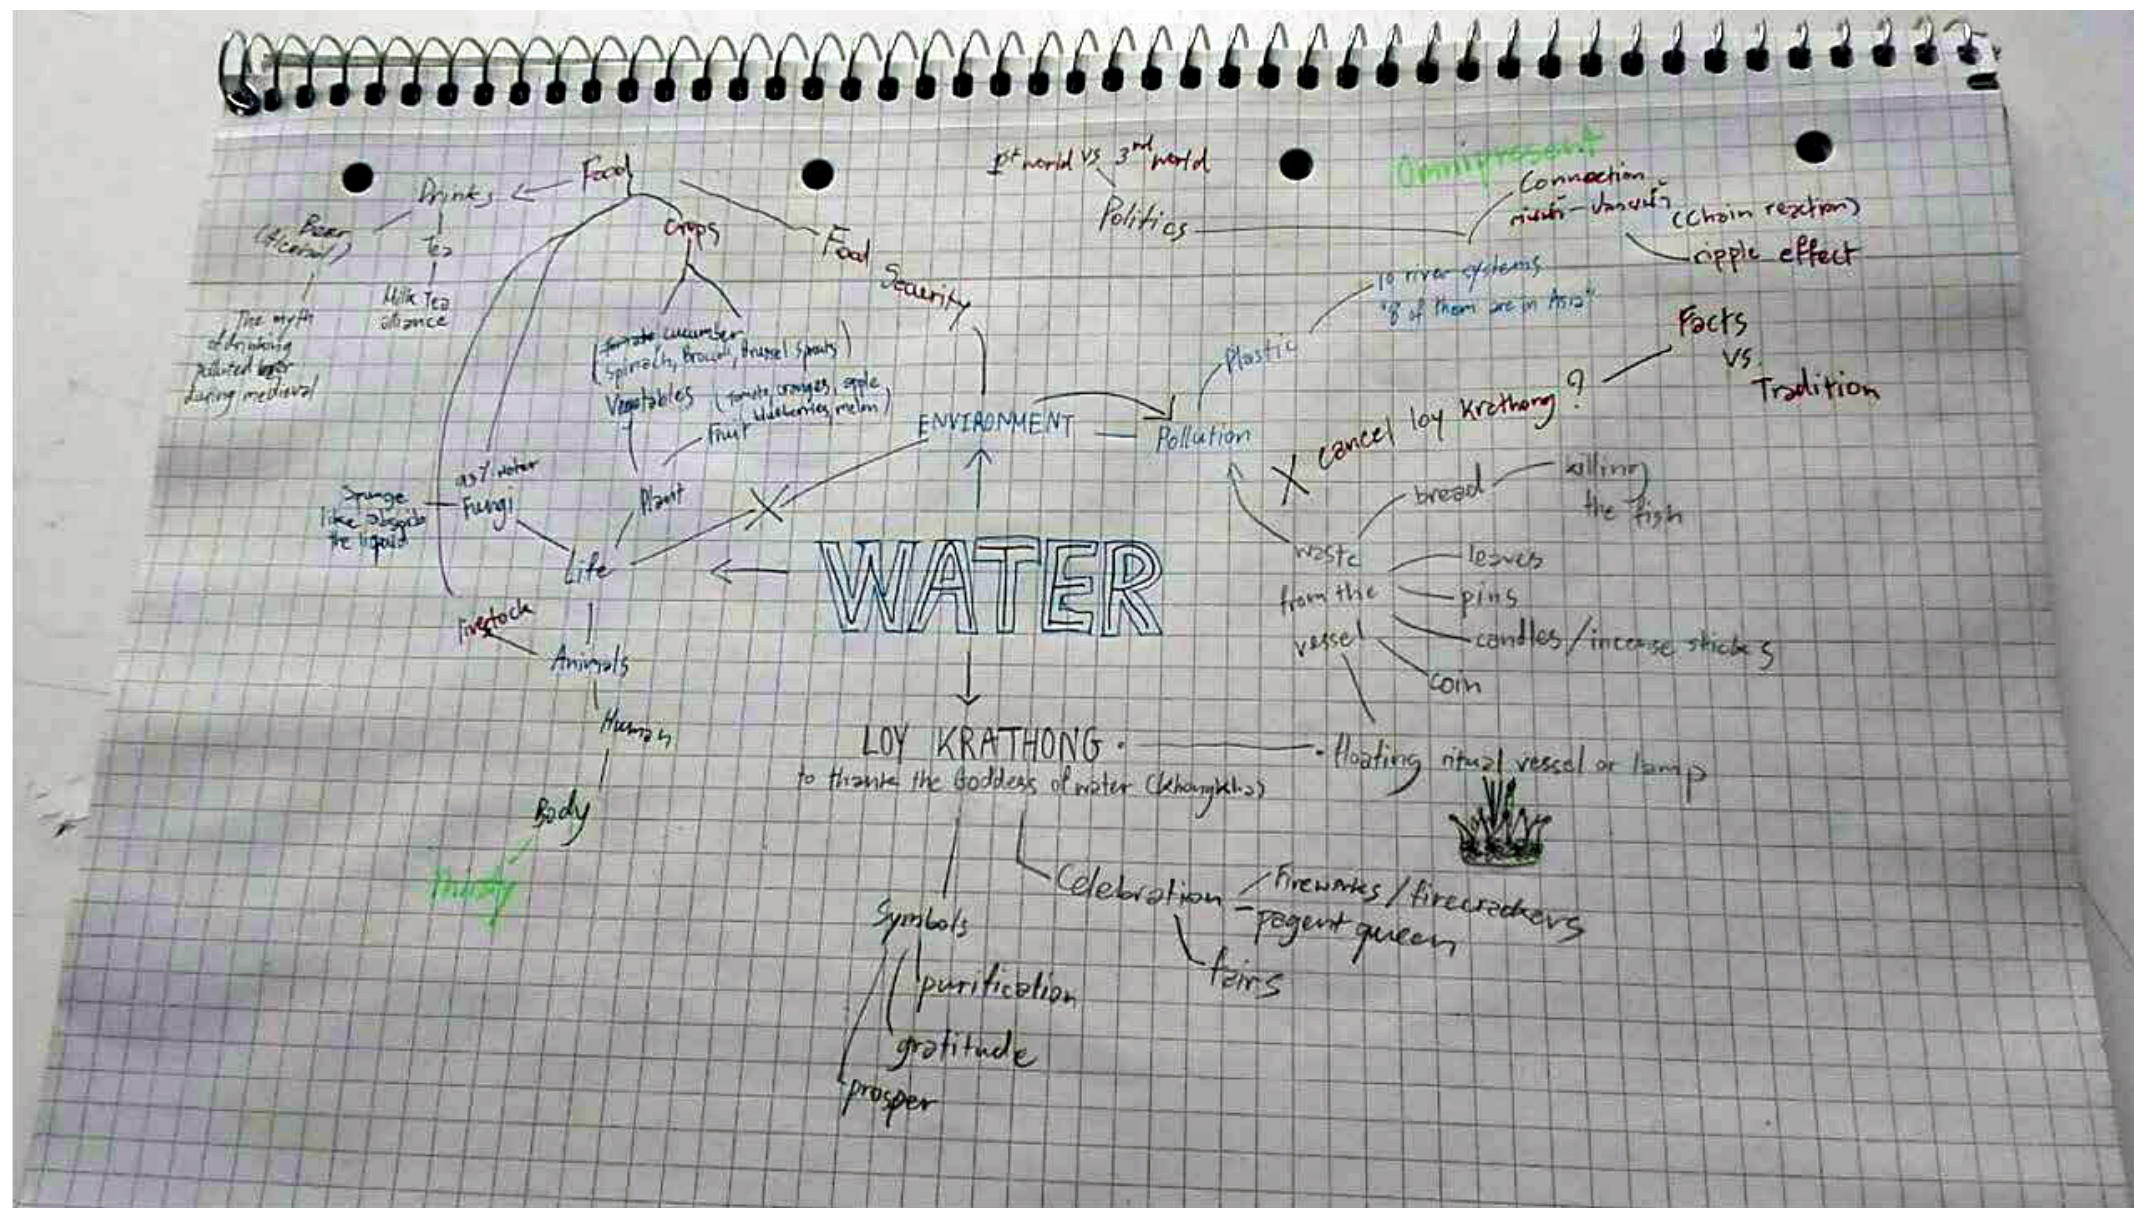 Food
Drinks
Beer
The myth
of drinking
polluted
during medieval
Tea
Milk Tea
alliance
Crops
Food
Security
cucumber
Spinach, Broccoli, Brussel sprouts)
Vegetables
(tomato, oranges, apple,
blueberries, melon)
Fruit
Plant
water
Fungi
Spunge
like absorb
the liquid
Life
Livestock
Animals
Human
Body
Thirsty
1st world vs 3rd world
Politics
Omnipresent
Connection
(Chain reaction)
ripple effect
10 river systems
"8 of them are in Asia"
Plastic
ENVIRONMENT
Pollution
Facts
vs
Tradition
X cancel loy Krathong?
X
bread
killing
the fish
waste
from the
vessel
leaves
pins
candles/incense sticks
coin
WATER
LOY KRATHONG
to thank the Goddess of water (Khongkha)
floating ritual vessel or lamp
Celebration
Fireworks/firecrackers
pagent queen
fairs
Symbols
purification
gratitude
prosper